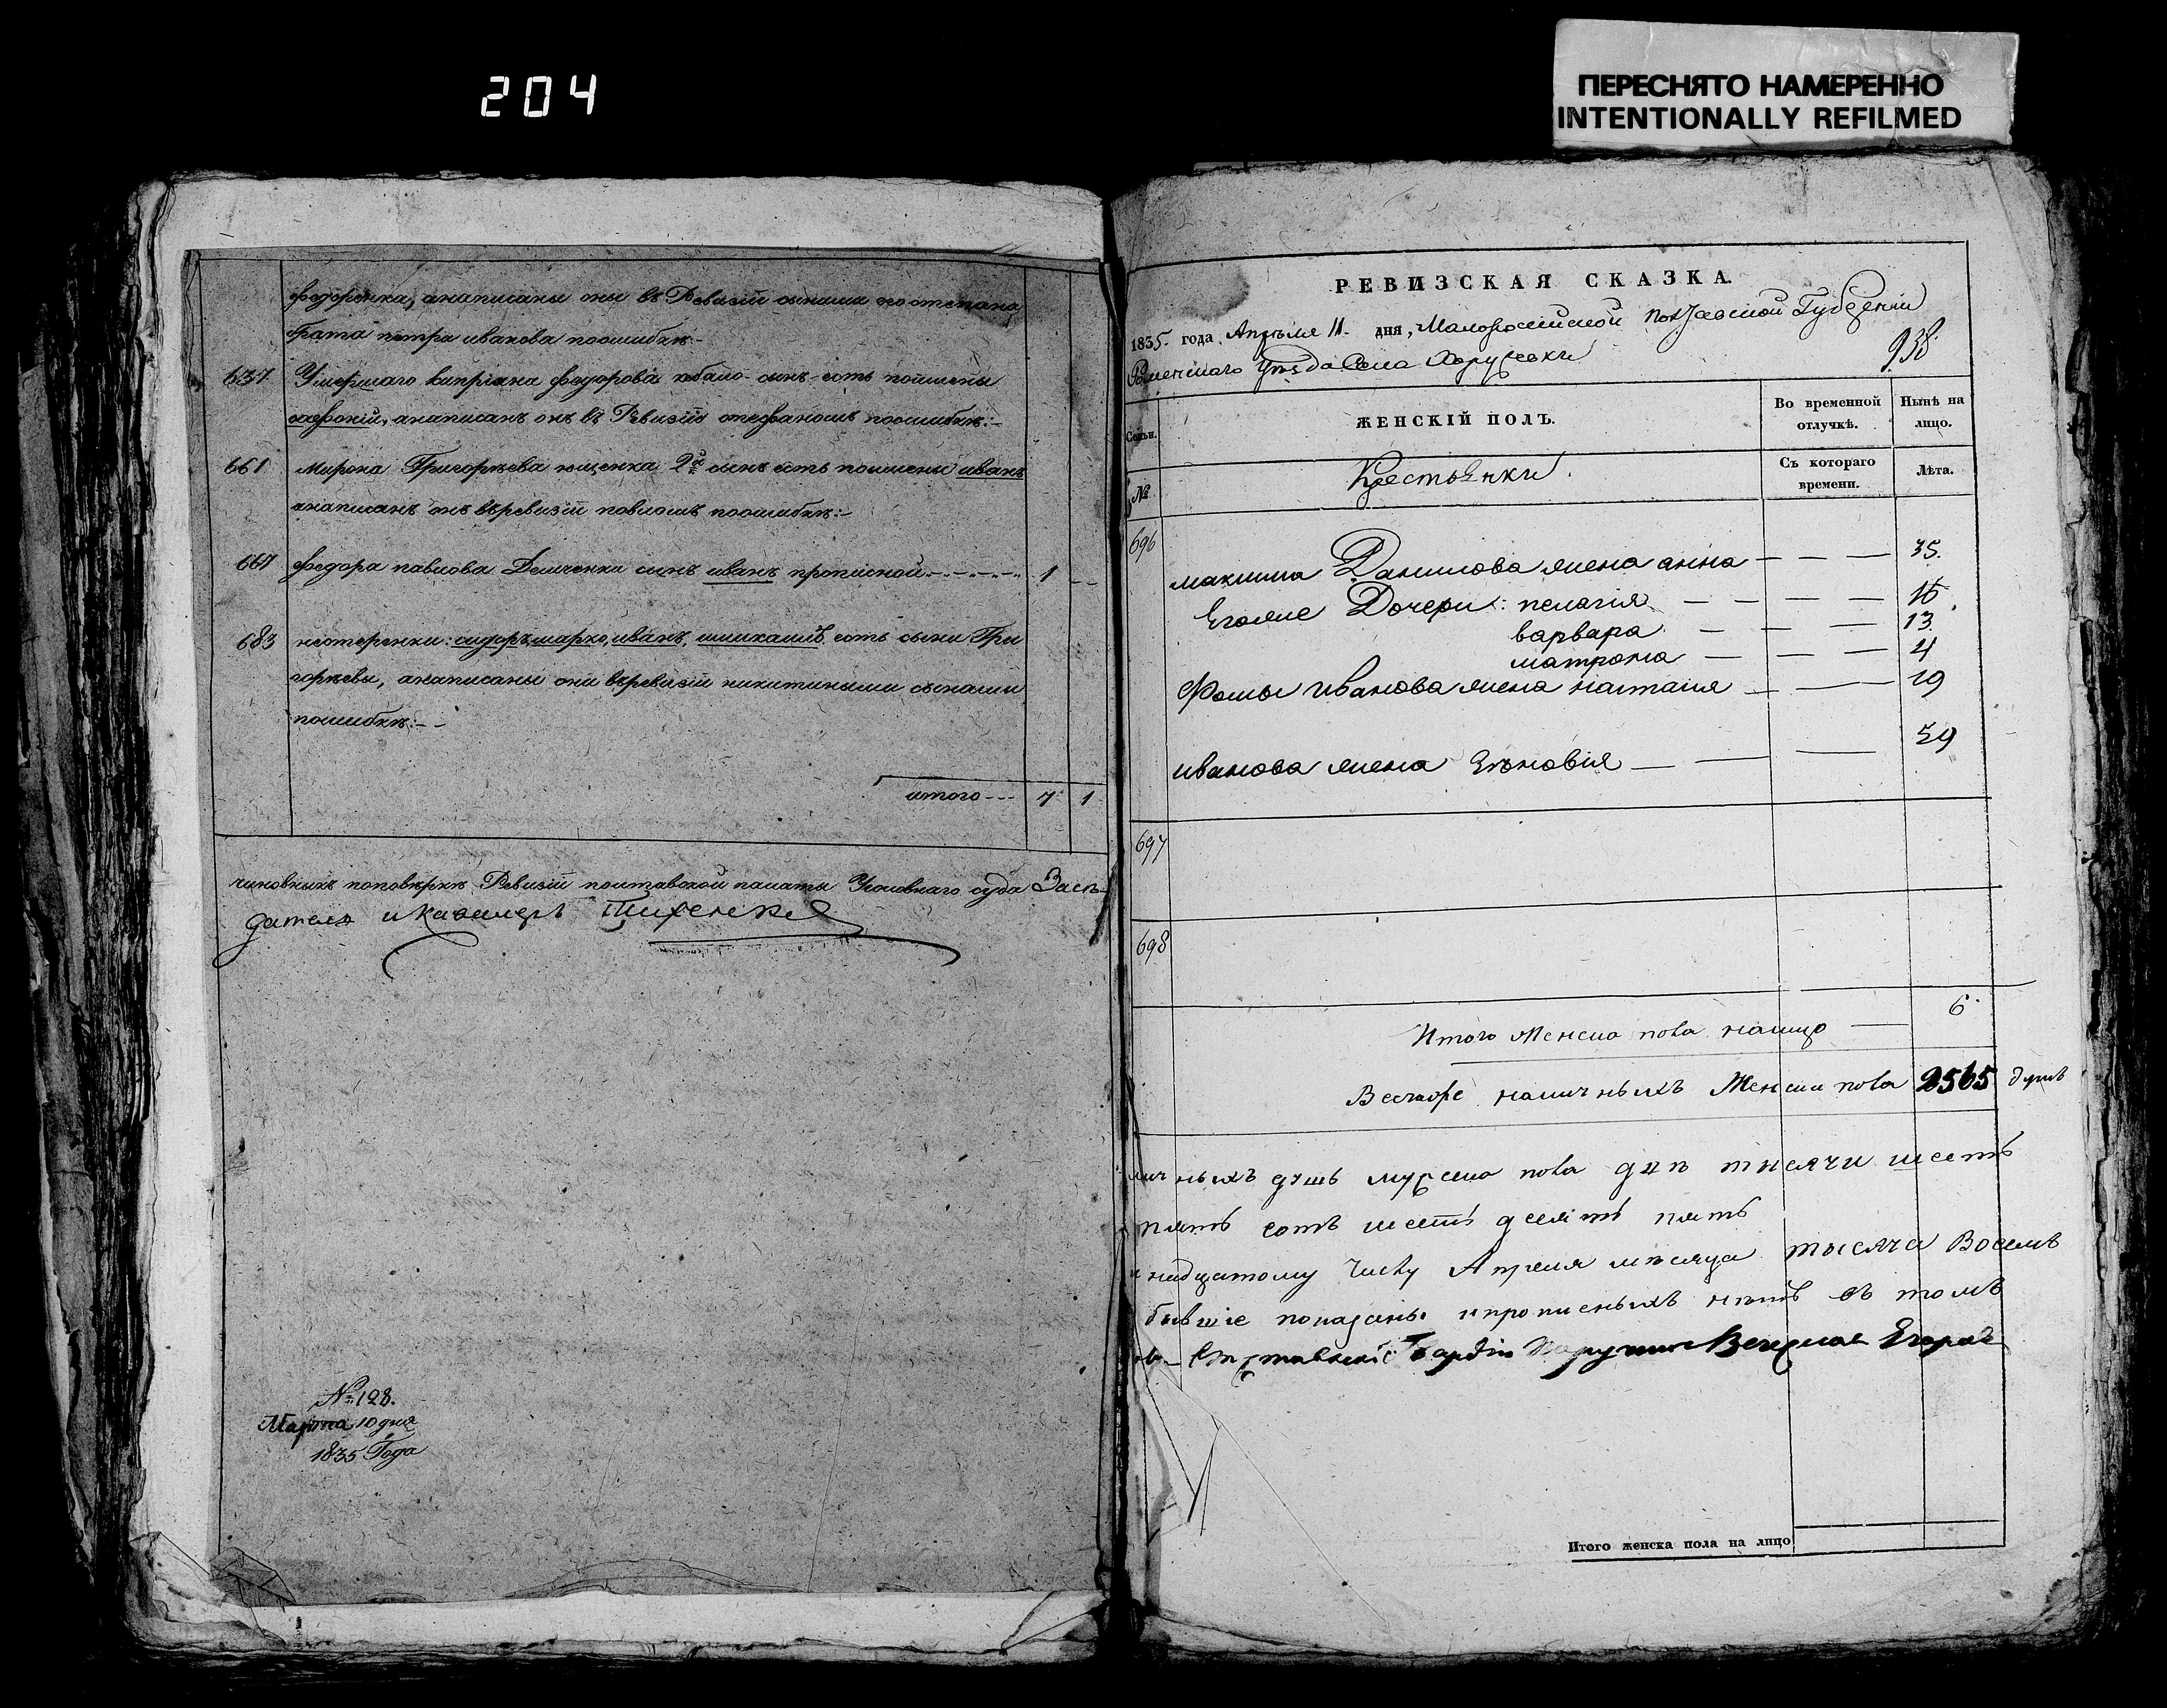 204
ПЕРЕСНЯТО НАМЕРЕННО
INTENTIONALLY REFILMED
федоренка, анаписаны оны въ Ревизіи сынами его степана
брата петра иванова поошибкѣ
637 Умершаго киприяна федорова сынъ есть поимени
анаписанъ онъ въ Ревизіи стефаномъ поошибкѣ:-
661 мирона Григорьева ющенка 2й сынъ есть поимени иванъ
анаписанъ онъ вревизіи павломъ поошибкѣ:-
667 федора павлова Демченка сынъ иванъ прописной 1
683 нестеренки: сидоръ, марко, иванъ, имикашъ есть сыни Гри
горьевы, анаписаны они вревизіи никитиными сынами
поошибкѣ:-
итого --- 7 1
чиновникъ поповѣркѣ Ревизіи полтавской палаты Уголовнаго суда Засѣ
датель икавалеръ
№ 128.
Марта 10 дня
1835 Года
РЕВИЗСКАЯ СКАЗКА.
1835. года Апрѣля 11. дня, Малоросийской Полтавской Губерніи
Роменскаго Уѣзда Села 938
Семьи. ЖЕНСКІЙ ПОЛЪ. Во временной отлучкѣ. Нынѣ на лицо.
№ Крестьянки Съ котораго времени. Лѣта.
696
максима Данилова жена анна 35.
Егоже Дочери: пелагія 16
варвара 13
матрона 4
Фомы иванова жена настасія 19
иванова жена Зѣновія 59
697
698
Итого Женска пола налицо 6
Всего наличныхъ Женска пола 2565 душъ
ныхъ душъ мужска пола двѣ тысячи шесть
пять сотъ шесть десятъ пять
надцатому числу Апреля мѣсяца тысяча Восемъ
бывшіе показаны ипрописныхъ нѣтъ въ томъ
Гвардіи
Итого женска пола на лицо